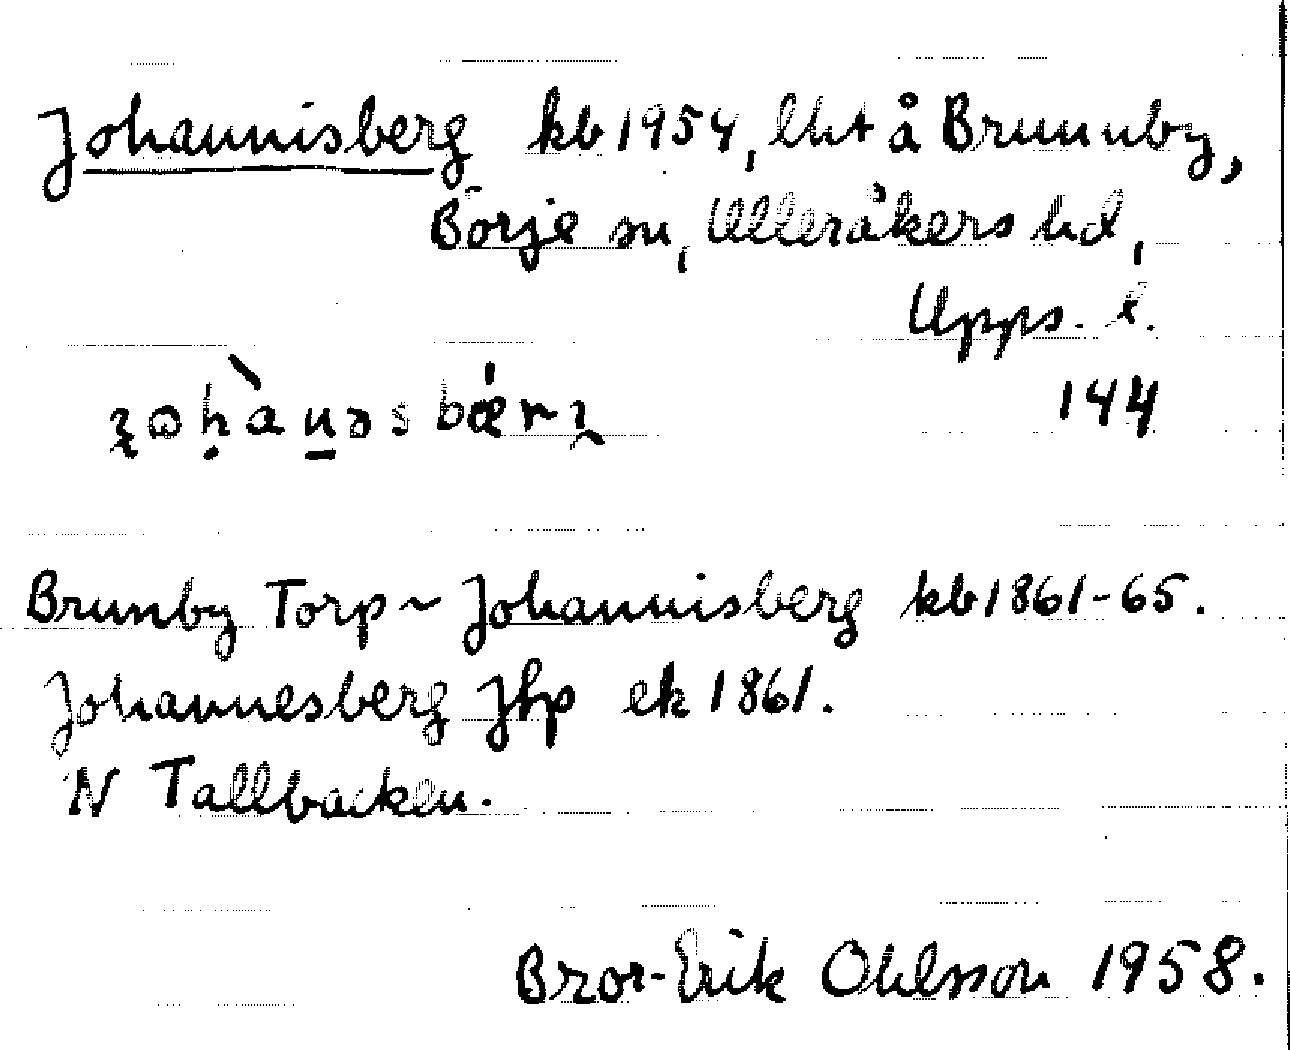 Johannisberg kb 1954, lht å Brunnby,
Börje sn, Ulleråkers hd,
Upps. l.
144
Brunby Torp ~ Johannisberg kb 1861-65.
Johannesberg Jfp ek 1861.
N Tallbacken.
Bror-Erik Ohlsson 1958.